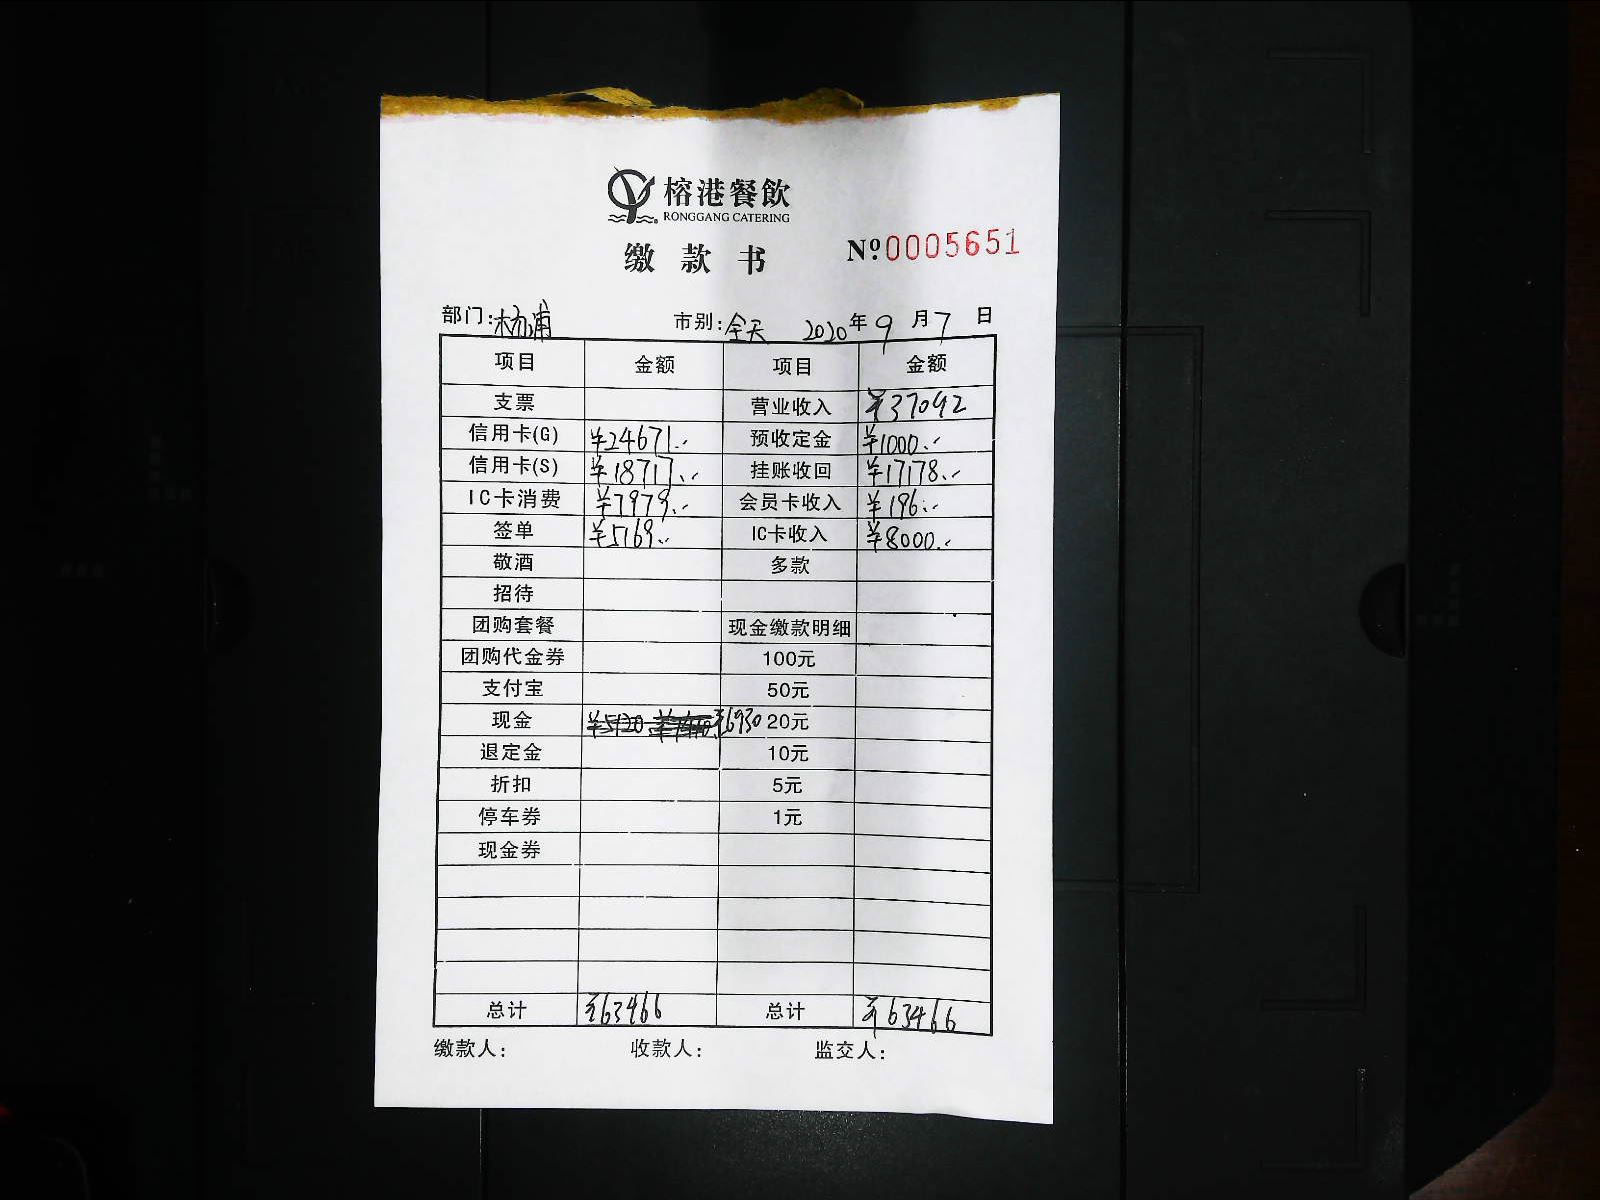 榕港餐飲
RONGGANG CATERING
缴款书 №0005651
部门:杨浦 市别:全天 2020年9月7日
项目 金额 项目 金额
支票 营业收入 ¥37092
信用卡(G) ¥24671.- 预收定金 ¥1000.-
信用卡(S) ¥18717.- 挂账收回 ¥17178.-
IC卡消费 ¥7979.- 会员卡收入 ¥196.-
签单 ¥5169.- IC卡收入 ¥8000.-
敬酒 多款
招待
团购套餐 现金缴款明细
团购代金券 100元
支付宝 50元
现金 ¥5120 ¥6930 20元
退定金 10元
折扣 5元
停车券 1元
现金券
总计 ¥63466 总计 ¥63466
缴款人: 收款人: 监交人: